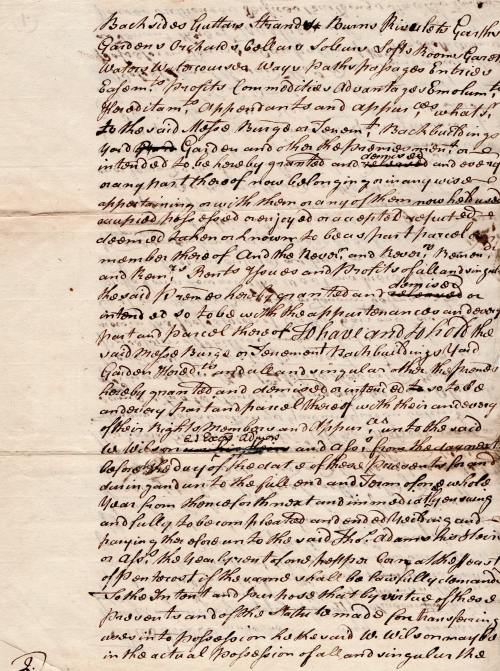 1.
Backsides Guttars Strands Burns Rivulets Garths
Gardens Orchards Cellars Solars Lofts Rooms
Waters Watercourses Ways Paths passages Entries
Easemts Profits Commodities Advantages Emolumts
Hereditamts Appendants and Appurces whats.
to the said Messe Burge or Tenemt, Backbuildings
Yard Garden and other the premes ment or
intended to be hereby granted and released demised and every
or any part thereof now belonging or in any wise
appertaining or with them or any of them now held used
occupied possessed or enjoyed or accepted reputed
deemed taken or known to be as part parcel or
member thereof And the Rever. and Revers. Remr.
and Remrs Rents Issues and Profits of all and singular
the said Premes hereby granted and released demised or
intended so to be with the appurtenances and every
part and parcel thereof To have and to hold the
said Messe Burge or Tenement Backbuildings Yard
Garden Heredts and all and singular other the Premes
hereby granted and demised or intended to so to be
and every part and parcel thereof with their and every
of their Rights Members and Appurces unto the said
W. Wilson es Excrs admors and Ass. from the day next
before the day of the date of these Presents for and
during and unto the full end and Term of one whole
Year from thence forth next and immediately ensuing
and fully to be compleated and ended Yeilding and
paying therefore unto the said Thos. Adams his Heirs
or Ass. the Yearly rent of one pepper Corn at the Feast
of Pentecost if the same shall be lawfully demanded
To the Intent and purpose that by virtue of these
Presents and of the Statute made for transferring
uses into possession he the said W. Wilson may be
in the actual Possession of all and singular the